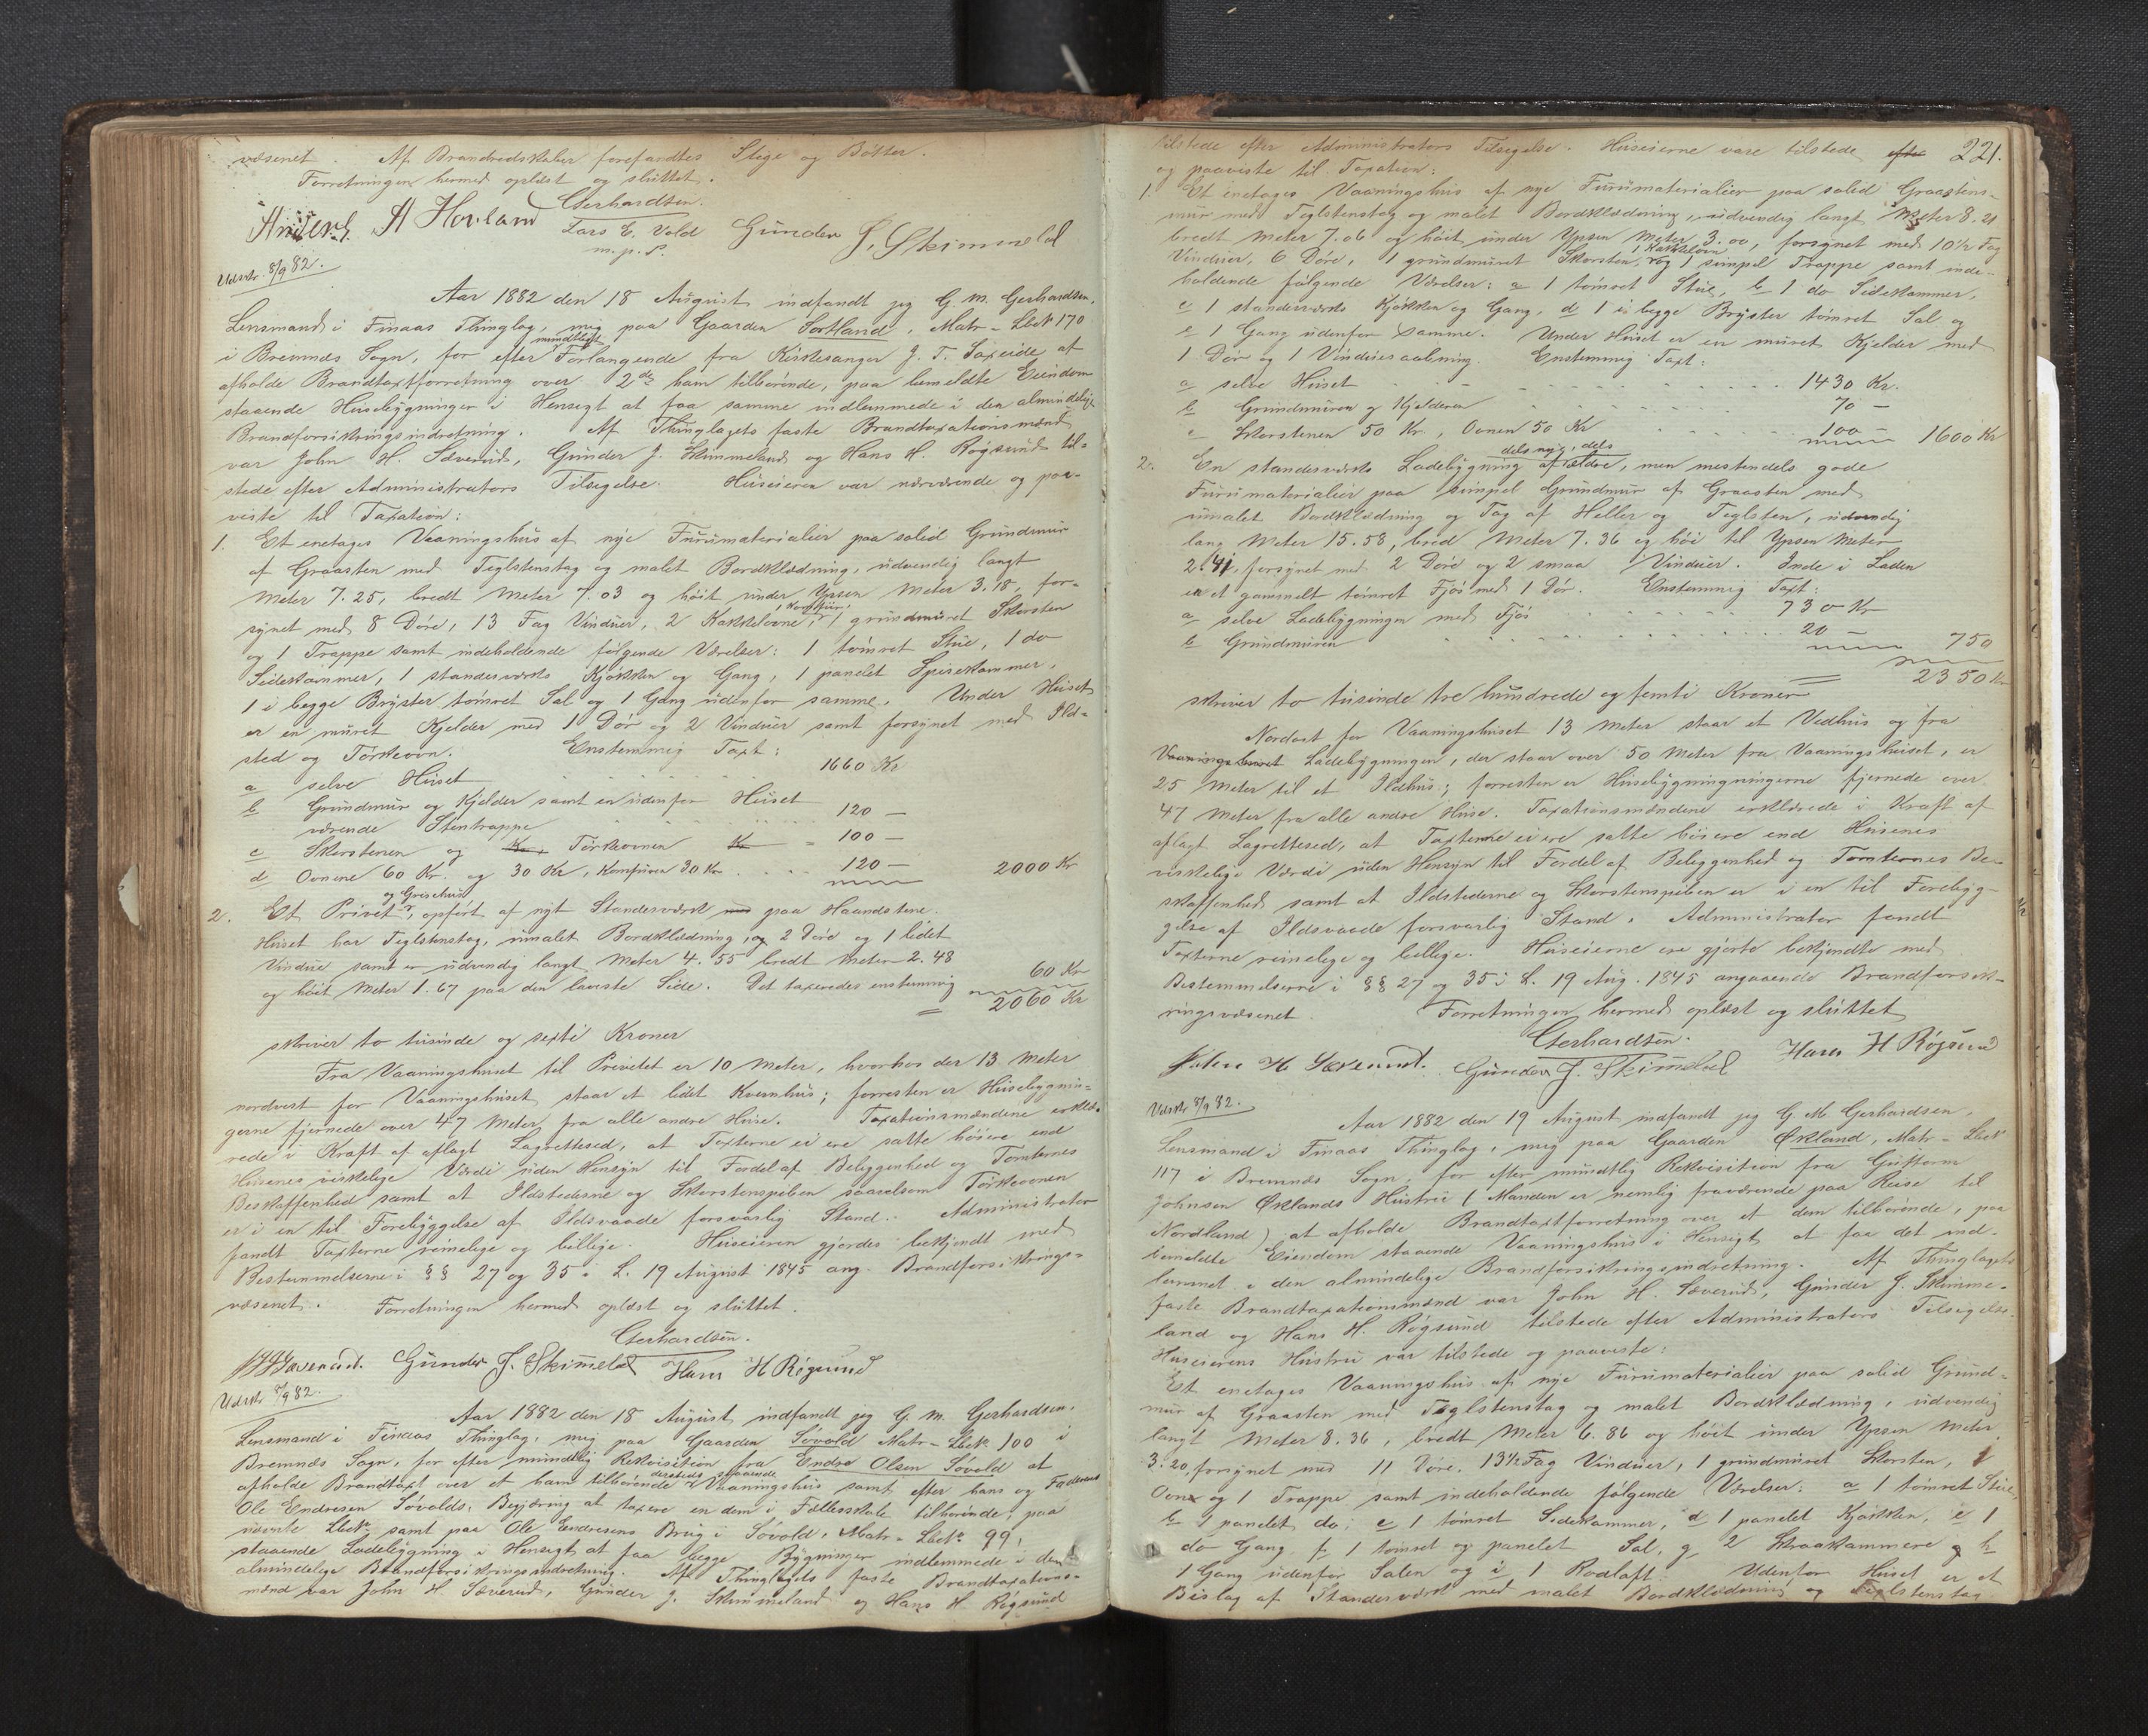 væsenet. Af Brandredskaber forefandtes Stige og Bøtter.
Forretningen hermed oplæst og sluttet.
Gerhardsen.
A Hovland Lars E. Vold Gunder J. Skimmeld
m. p. P.
Udskr. 8/9 82.
Aar 1882 den 18 August indfandt jeg G. M. Gerhardsen,
Lensmand i Finaas Thinglag, mig paa Gaarden Sortland, Matr-Lbno 170
i Bremnæs Sogn, for efter mundtligt Forlangende fra Kirkesanger J. T. Saxeide at
afholde Brandtaxtforretning over 2de ham tilhørende, paa bemeldte Eiendom
staaende Husebygninger i Hensigt at faa samme indlemmede i den almindelige
Brandforsikringsindretning. Af Thinglagets faste Brandtaxationsmænd
var John H. Sæverud, Gunder J. Skimmeland og Hans H. Røgsund til-
stede efter Administrators Tilsigelse. Huseieren var nærværende og paa-
viste til Taxation:
1. Et enetages Vaaningshus af nye Furumaterialier paa solid Grundmur
af Graasten med Teglstenstag og malet Bordklædning, udvendig langt
Meter 7.25, bredt Meter 7.03 og høit under Ypsen Meter 3.18, for-
synet med 8 Døre, 13 Fag Vinduer, 2 Kakkelovne, 1 Komfur, 1 grundmuret Skorsten
og 1 Trappe samt indeholdende følgende Værelser: 1 tømret Stue, 1 do
Sidekammer, 1 standerværks Kjøkken og Gang, 1 panelet Spisekammer,
1 i begge Bryster tømret Sal og 1 Gang udenfor samme. Under Huset
er en muret Kjelder med 1 Dør og 2 Vinduer samt forsynet med Ild-
sted og Tørkeovn. Enstemmig Taxt:
a selve Huset 1660 Kr
b Grundmur og Kjelder samt en udenfor Huset
værende Stentrappe 120 —
c Skorstenen og Tørkeovnen 100 —
d Ovnene 60 Kr. og 30 Kr, Komfuren 30 Kr 120 — 2000 Kr
2. Et Privet og Grisehus, opført af nyt Standerværk paa Haandstene.
Huset har Teglstenstag, umalet Bordklædning, og 2 Døre og 1 lidet
Vindue samt er udvendig langt Meter 4.55 bredt Meter 2.48
og høit Meter 1.67 paa den laveste Side. Det taxeredes enstemmig 60 Kr
2060 Kr
skriver to tusinde og sexti Kroner
Fra Vaaningshuset til Privetet er 10 Meter, hvorhos der 13 Meter
nordvest for Vaaningshuset staar et lidet Kvernhus; forresten er Husebygnin-
gerne fjernede over 47 Meter fra alle andre Huse. Taxationsmændene erklæ-
rede i Kraft af aflagt Lagrettesed, at Taxterne ei ere satte høiere end
Husenes virkelige Værdi uden Hensyn til Fordel af Beliggenhed og Tomternes
Beskaffenhed samt at Ildstederne og Skorstenspiben saavelsom Tørkeovnen
er i en til Forebyggelse af Ildsvaade forsvarlig Stand. Administrator
fandt Taxterne rimelige og billige. Huseieren gjordes bekjendt med
Bestemmelserne i §§ 27 og 35 i L. 19 August 1845 ang. Brandforsikrings-
væsenet. Forretningen hermed oplæst og sluttet.
Gerhardsen.
Gunder J. Skimeld Hans H Røgsund
Udskr 8/9 82.
Aar 1882 den 18 August indfandt jeg G. M. Gerhardsen,
Lensmand i Finaas Thinglag, mig paa Gaarden Søvold Matr-Lbno 100 i
Bremnæs Sogn, for efter mundtlig Rekvisition fra Endre Olsen Søvold at
afholde Brandtaxt over et ham tilhørende dersteds staaende Vaaningshus samt efter hans og Faderens
Ole Endresen Søvolds, Begjæring at taxere en dem i Fællesskab tilhørende, paa
nævnte Lbno samt paa Ole Endresens Brug i Søvold, Matr-Lbno 99,
staaende Ladebygning i Hensigt at faa begge Bygninger indlemmede i den
almindelige Brandforsikringsindretning. Af Thinglagets faste Brandtaxations-
mænd var John H. Sæverud, Gunder J. Skimmeland og Hans H. Røgsund
221.
tilstede efter Administrators Tilsigelse. Huseierne vare tilstede efter
og paaviste til Taxation:
1. Et enetages Vaaningshus af nye Furumaterialier paa solid Graastens-
mur med Teglstenstag og malet Bordklædning, udvendig langt Meter 8.21
bredt Meter 7.06 og høit under Ypsen Meter 3.00, forsynet med 10½ Fag
Vinduer, 6 Døre, 1 grundmuret Skorsten, 1 Kakkelovn og 1 simpel Trappe samt inde-
holdende følgende Værelser: a 1 tømret Stue, b 1 do Sidekammer,
c 1 standerværks Kjøkken og Gang, d 1 i begge Bryster tømret Sal og
e 1 Gang udenfor samme. Under Huset er en muret Kjelder med
1 Dør og 1 Vinduesaabning. Enstemmig Taxt:
a selve Huset 1430 Kr.
b Grundmuren og Kjelderen 70 —
c Skorstenen 50 Kr., Ovnen 50 Kr 100 — 1600 Kr
2. En standerværks Ladebygning af dels nye, dels ældre, men mestendels gode
Furumaterialier paa simpel Grundmur af Graasten med
umalet Bordklædning og Tag af Heller og Teglsten, udvendig
lang Meter 15.58, bred Meter 7.36 og høi til Ypsen Meter
2.41, forsynet med 2 Døre og 2 smaa Vinduer. Inde i Laden
er et gammelt tømret Fjøs med 1 Dør. Enstemmig Taxt:
a selve Ladebygningen med Fjøs 730 Kr
b Grundmuren 20 — 750
2350 Kr
skriver to tusinde tre hundrede og femti Kroner
Nordost for Vaaningshuset 13 Meter staar et Vedhus og fra
Vaaningshuset Ladebygningen, der staar over 50 Meter fra Vaaningshuset, er
25 Meter til et Ildhus; forresten er Husebygningningerne fjernede over
47 Meter fra alle andre Huse. Taxationsmændene erklærede i Kraft af
aflagt Lagrettesed, at Taxterne ei ere satte høiere end Husenes
virkelige Værdi uden Hensyn til Fordel af Beliggenhed og Tomternes Be-
skaffenhed samt at Ildstederne og Skorstenspiben er i en til Forebyg-
gelse af Ildsvaade forsvarlig Stand. Administrator fandt
Taxterne rimelige og billige. Huseierne ere gjorte bekjendte med
Bestemmelserne i §§ 27 og 35 i L. 19 Aug. 1845 angaaende Brandforsik-
ringsvæsenet. Forretningen hermed oplæst og sluttet
Gerhardsen.
John H Sæverud. Gunder J. Skimeld Hans H Røgsund
Udskr 8/9 82.
Aar 1882 den 19 August indfandt jeg G. M. Gerhardsen,
Lensmand i Finaas Thinglag, mig paa Gaarden Økland, Matr-Lbno
117 i Bremnæs Sogn, for efter mundtlig Rekvisition fra Guttorm
Johnsen Øklands Hustru (Manden er nemlig fraværende paa Reise til
Nordland) at afholde Brandtaxtforretning over et dem tilhørende, paa
bemeldte Eiendom staaende Vaaningshus i Hensigt at faa det ind-
lemmet i den almindelige Brandforsikringsindretning. Af Thinglagets
faste Brandtaxationsmænd var John H. Sæverud, Gunder J. Skimme-
land og Hans H. Røgsund tilstede efter Administrators Tilsigelse.
Huseierens Hustru var tilstede og paaviste:
Et enetages Vaaningshus af nye Furumaterialier paa solid Grund-
mur af Graasten med Teglstenstag og malet Bordklædning, udvendig
langt Meter 8.36, bredt Meter 6.86 og høit under Ypsen Meter
3.20, forsynet med 11 Døre, 13½ Fag Vinduer, 1 grundmuret Skorsten, 1
Ovn og 1 Trappe samt indeholdende følgende Værelser: a 1 tømret Stue,
b 1 panelet do; c 1 tømret Sidekammer, d 1 panelet Kjøkken, e 1
do Gang, f 1 tømret og panelet Sal, g 2 Skraakammere og h
1 Gang udenfor Salen og i 1 Rodloft. Udenfor Huset er et
Bislag af Standerværk med malet Bordklædning og Teglstenstag